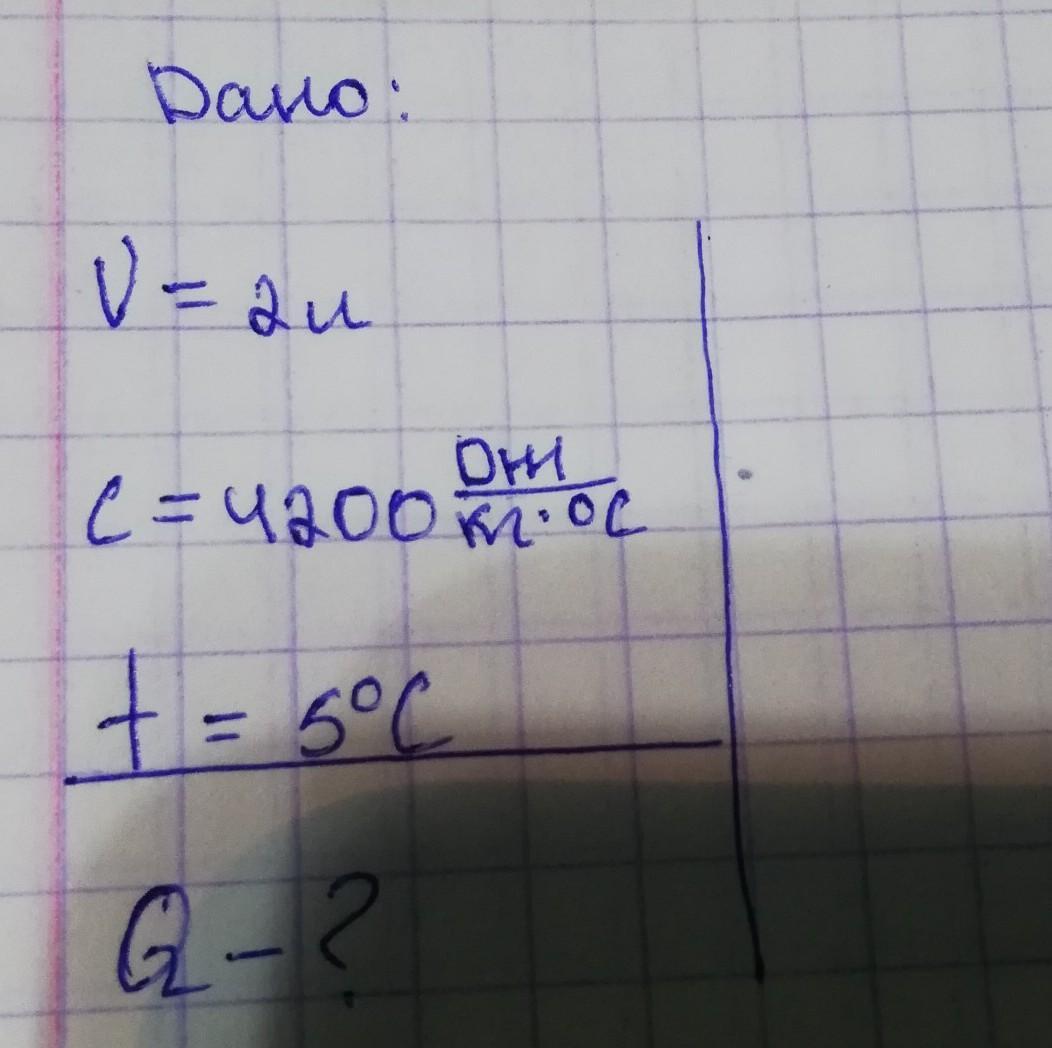 Дано:
V = 2л
c = 4200 Дж/кг·°C
t = 5°C
Q - ?